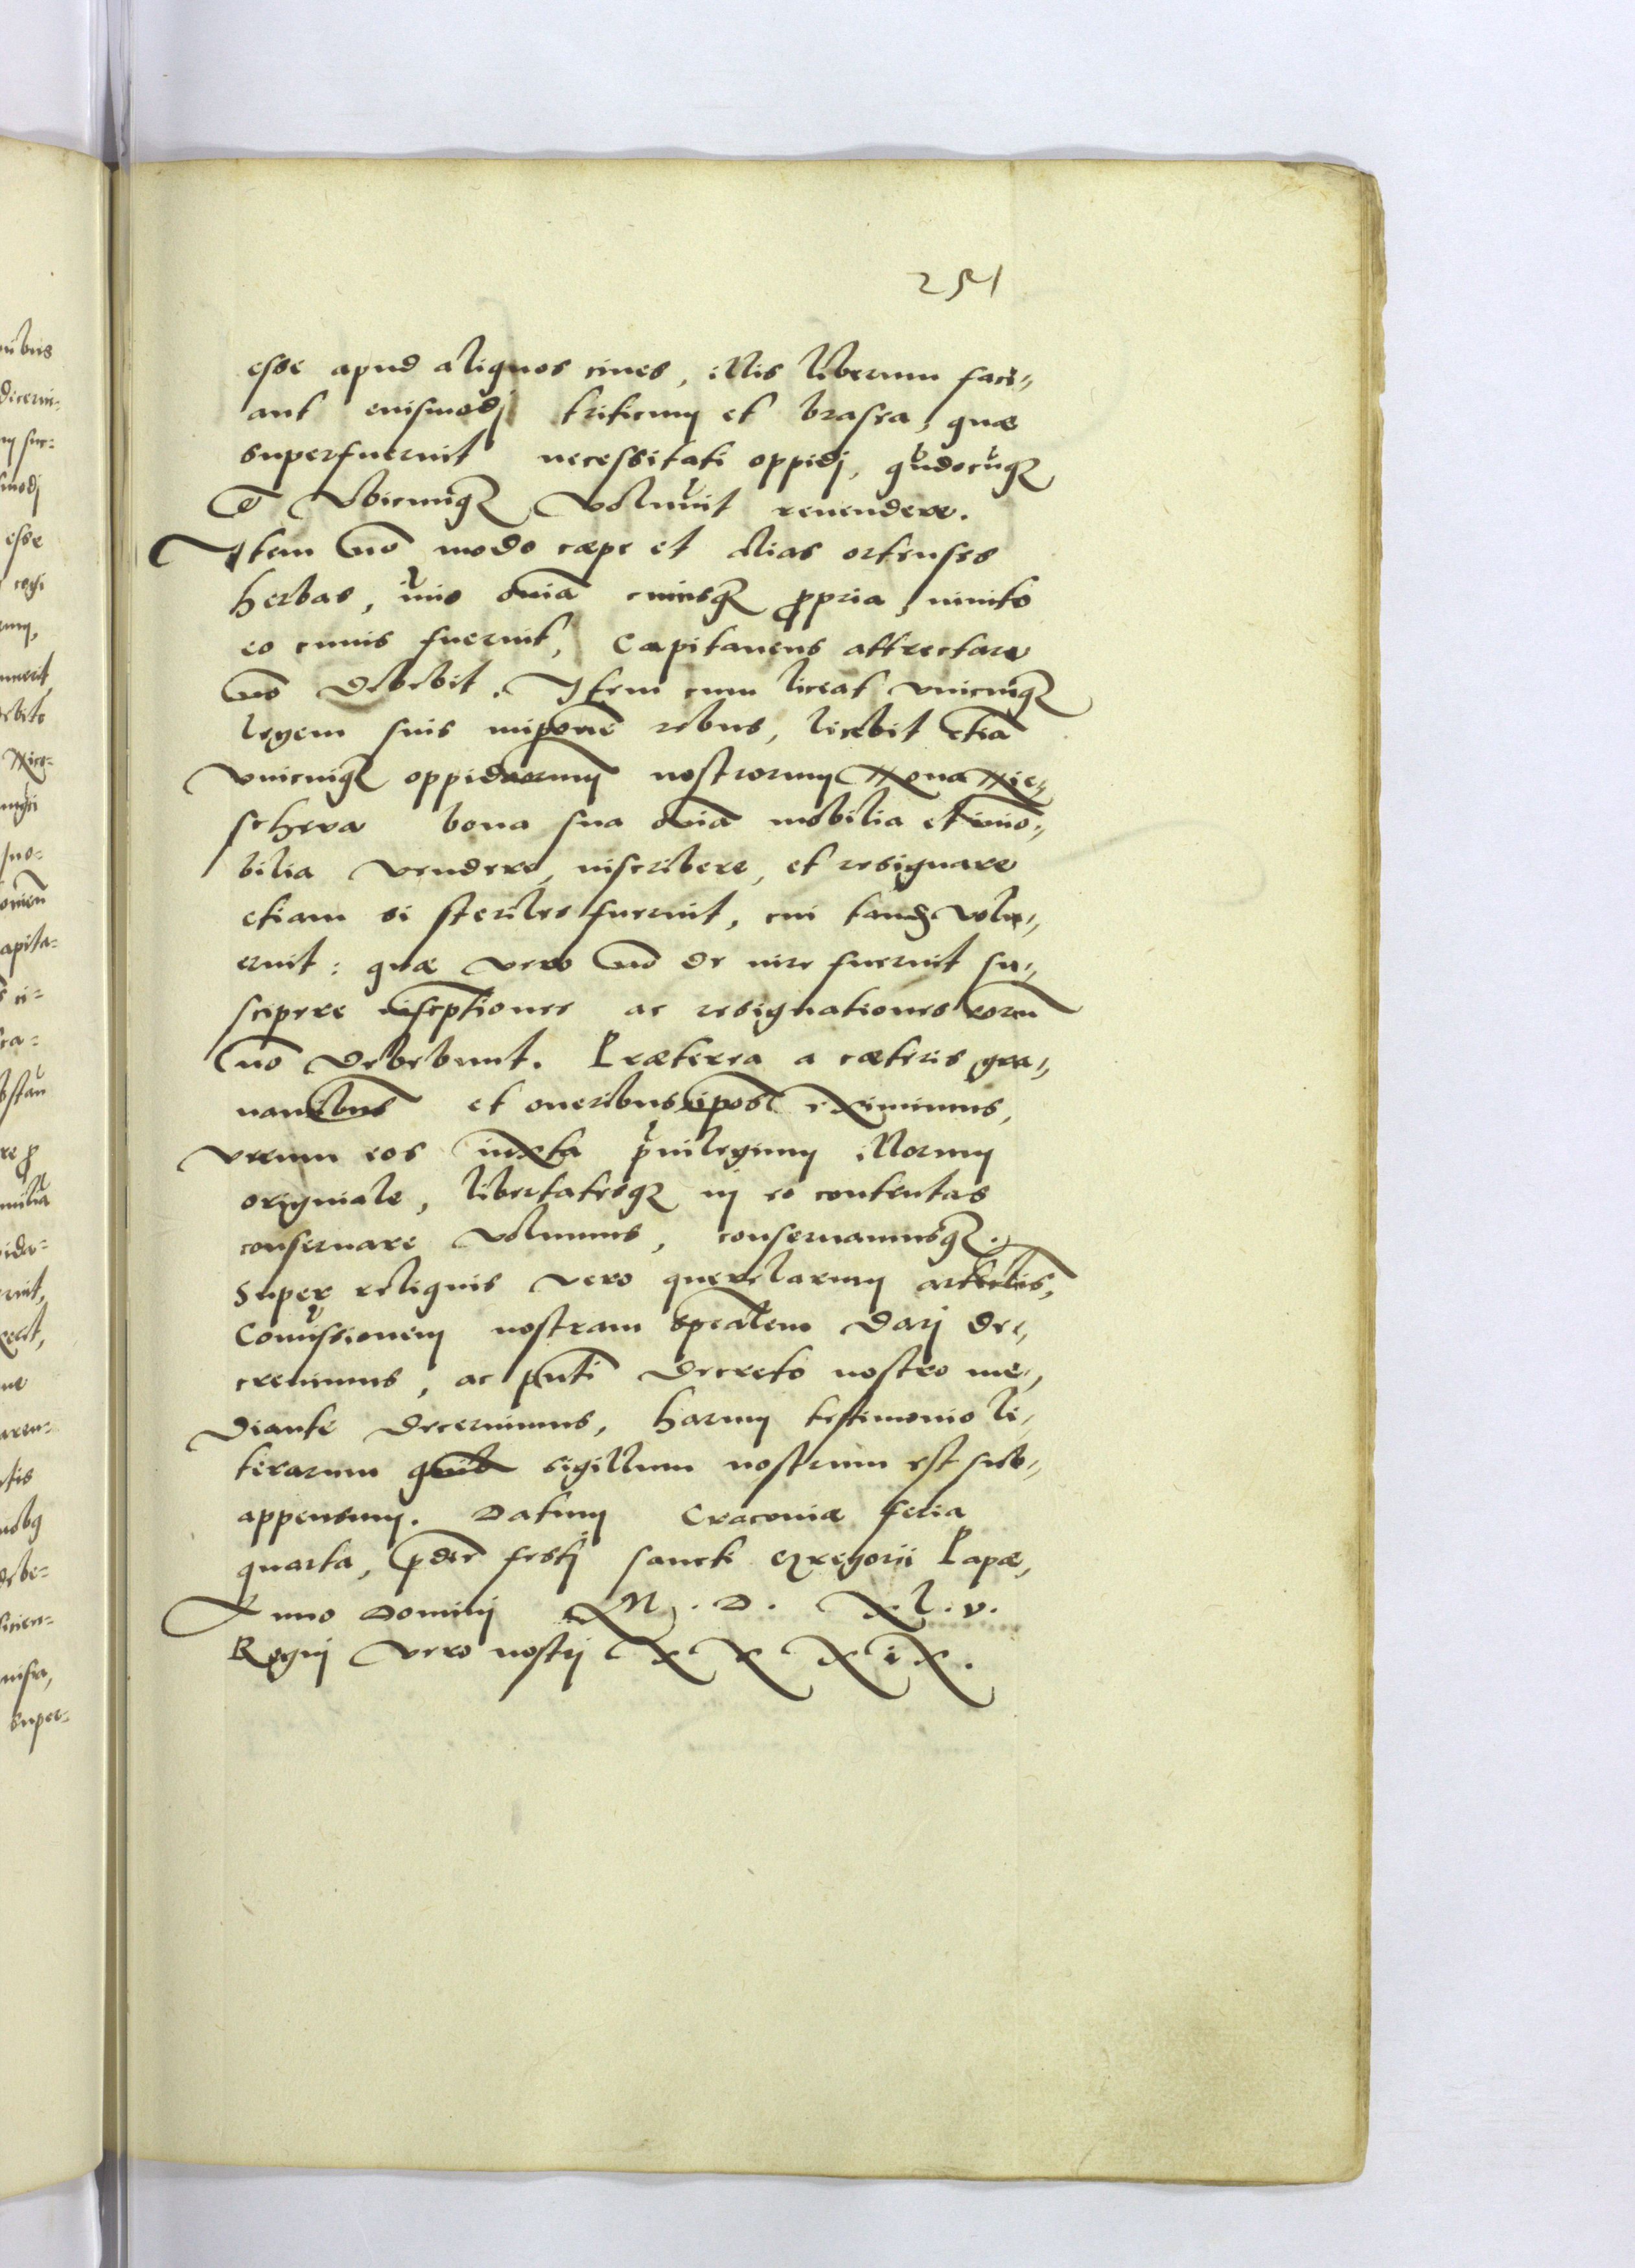 251
esse apud aliquos cives, illis liberum faci„
ant euismodj triticum et brasea, quæ
superfuerint necessitati oppidj, qūdocūq3
et ubicumq3 voluerint revendere.
Item nō modo cæpe et alias ortenses
herbas, imo om̄ia cuiusq3 propria, invito
eo cuius fuerint, Capitaneus attrectare
nō debebit. Item cum liceat unicuiq3
legem suis imponē rebus, licebit etiā
unicuiq3 oppidanorum nostrorum
schera bona sua om̄ia mobilia et im̄o„
bilia vendere, inscribere, et resignare
etiam si steriles fuerint, cui tandē volu„
erint: quæ vero nō de iure fuerint su„
scipere inscptiones ac resignationes eorum
nō debebunt. Præterea a cæteris gra„
et oneribus eximimus,
verum eos iuxta privilegium illorum
originale, libertatesq3 in eo contentas
conservare volumus, conservamusq3.
Super reliquis vero querelarum artīclis,
Com̄issionem nostram specialem darj de„
crevimus, ac pn̄ti decreto nostro me„
diante decernimus, harum testimonio li„
terarum quib sigillum nostrum est sub„
appensum. Datum Cracoviæ feria
quarta, pridie festj sancti Gregorii Papæ,
Anno Dominj M. D. XL.v.
Regnj vero nostrj XXXIX.